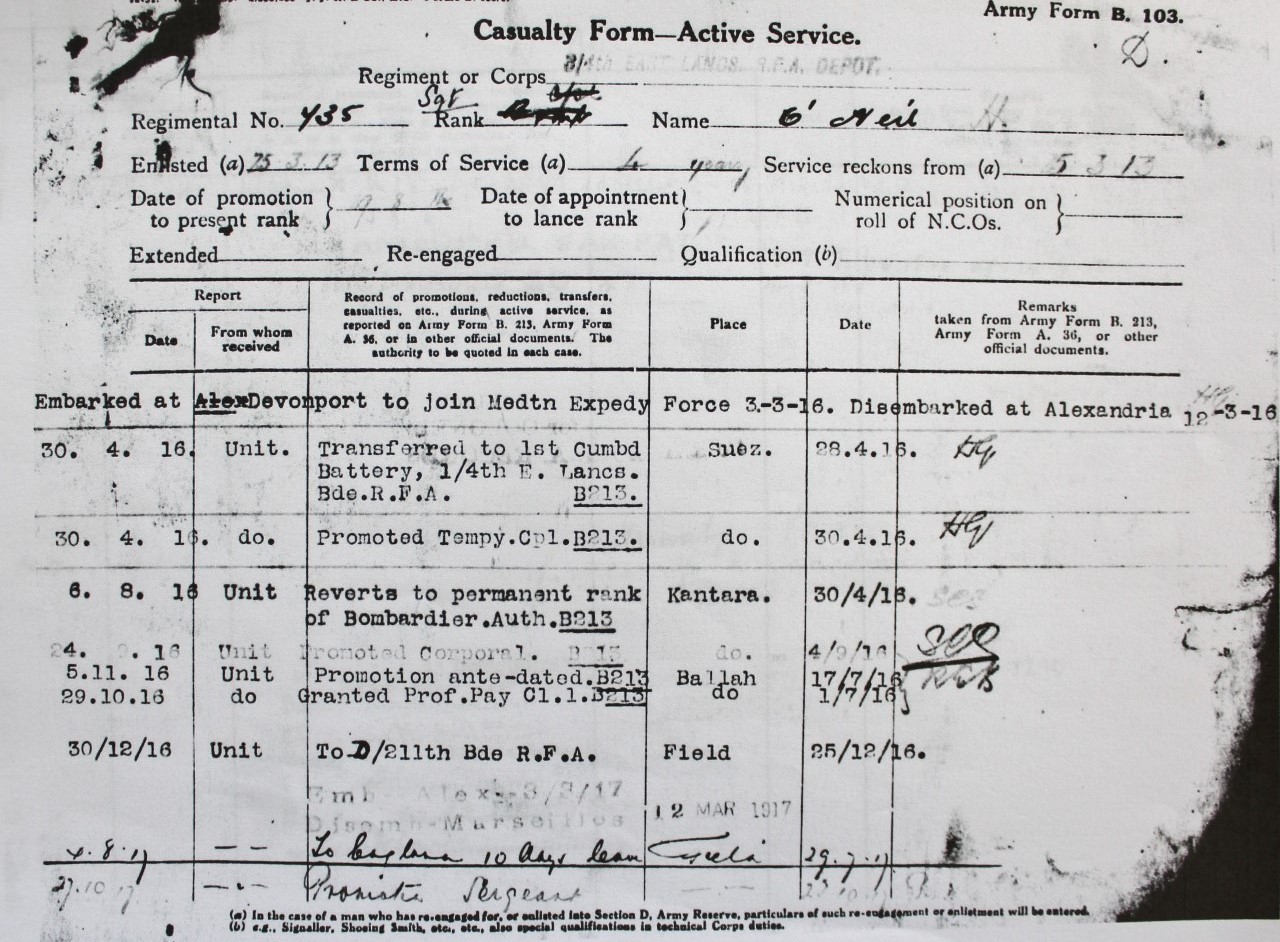 Army Form B. 103.
D.
Casualty Form—Active Service.
Regiment or Corps 3/4th EAST LANCS. R.F.A. DEPOT.
Sgt
Regimental No. 435 Rank Name O' Neil H.
Enlisted (a) 25 3.13 Terms of Service (a) 4 years, Service reckons from (a) 25 3 13
Date of promotion to present rank } Date of appointment to lance rank } Numerical position on roll of N.C.Os. }
Extended Re-engaged Qualification (b)
Report
Date
From whom received
Record of promotions, reductions, transfers, casualties, etc., during active service, as reported on Army Form B. 213, Army Form A. 36, or in other official documents. The authority to be quoted in each case.
Place
Date
Remarks
taken from Army Form B. 213, Army Form A. 36, or other official documents.
Embarked at Alex Devonport to join Medtn Expedy Force 3-3-16. Disembarked at Alexandria 12-3-16
30. 4. 16. Unit. Transferred to 1st Cumbd Suez. 28.4.16.
Battery, 1/4th E. Lancs.
Bde.R.F.A. B213.
30. 4. 16. do. Promoted Tempy.Cpl.B213. do. 30.4.16.
6. 8. 16 Unit Reverts to permanent rank Kantara. 30/4/16.
of Bombardier.Auth.B213
24. 16 Unit Promoted Corporal. B213 do. 4/9/16
5.11. 16 Unit Promotion ante-dated.B213 Ballah 17/7/16
29.10.16 do Granted Prof.Pay Cl.1.B213 do 1/7/16
30/12/16 Unit To D/211th Bde R.F.A. Field 25/12/16.
Emb- Alex-3/3/17
Disemb-Marseilles 12 MAR 1917
4.8.17 -- To England 10 days leave Field 29.7.17
27.10.17 Promoted Sergeant
(a) In the case of a man who has re-engaged for, or enlisted into Section D, Army Reserve, particulars of such re-engagement or enlistment will be entered.
(b) e.g., Signaller, Shoeing Smith, etc., etc., also special qualifications in technical Corps duties.